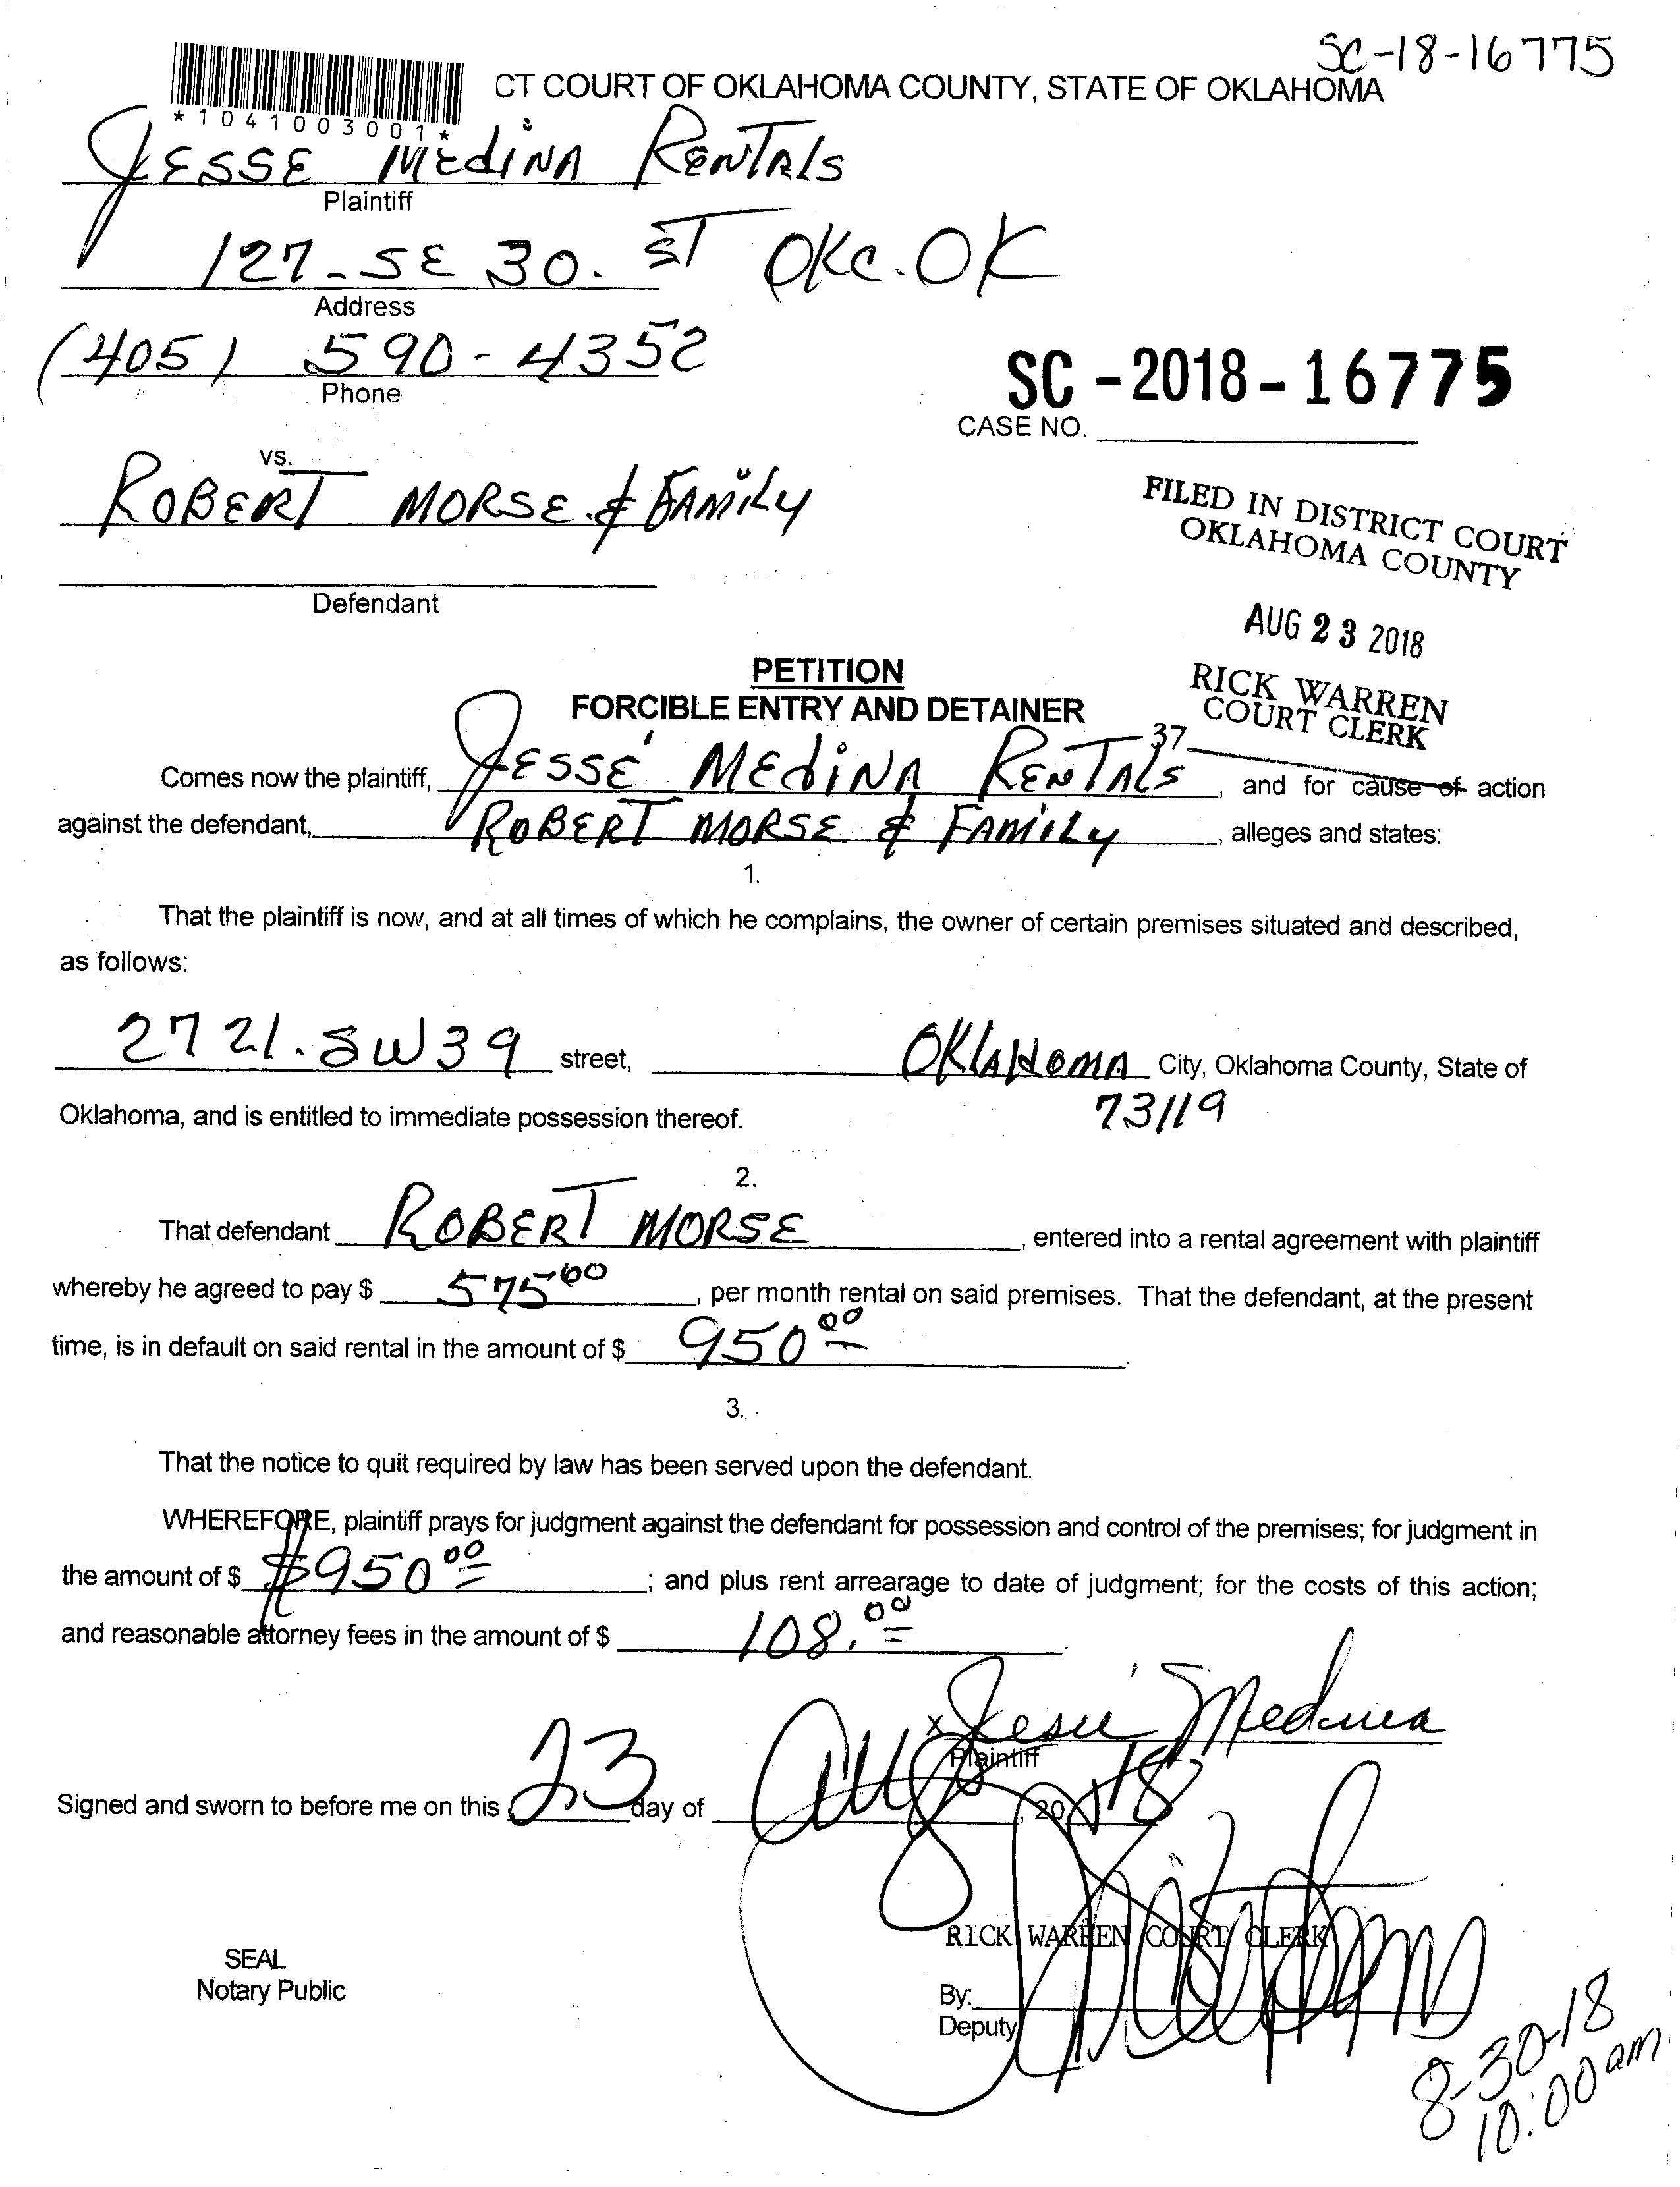 SC-18-16775
*1041003001*
CT COURT OF OKLAHOMA COUNTY, STATE OF OKLAHOMA
JESSE MEdiNA RENTAlS
Plaintiff
127-SE 30. ST OKC.OK
Address
(405) 590-4352
Phone
SC-2018-16775
CASE NO.
vs.
ROBERT MORSE & FAMiLy
Defendant
FILED IN DISTRICT COURT
OKLAHOMA COUNTY
AUG 23 2018
RICK WARREN
COURT CLERK
37
PETITION
FORCIBLE ENTRY AND DETAINER
Comes now the plaintiff, JESSE MEdiNA RENTAlS, and for cause of action
against the defendant, ROBERT MORSE & FAMiLy, alleges and states:
1.
That the plaintiff is now, and at all times of which he complains, the owner of certain premises situated and described,
as follows:
2721.SW39 street, OKlAHOMA City, Oklahoma County, State of
Oklahoma, and is entitled to immediate possession thereof. 73119
2.
That defendant ROBERT MORSE, entered into a rental agreement with plaintiff
whereby he agreed to pay $ 575 00, per month rental on said premises. That the defendant, at the present
time, is in default on said rental in the amount of $ 950 00.
3.
That the notice to quit required by law has been served upon the defendant.
WHEREFORE, plaintiff prays for judgment against the defendant for possession and control of the premises; for judgment in
the amount of $ $950 00; and plus rent arrearage to date of judgment; for the costs of this action;
and reasonable attorney fees in the amount of $ 108.00.
X Jesse Medina
Plaintiff
Signed and sworn to before me on this 23 day of Aug, 20 18
RICK WARREN COURT CLERK
SEAL
Notary Public
By:
Deputy
8-30-18
10:00 am